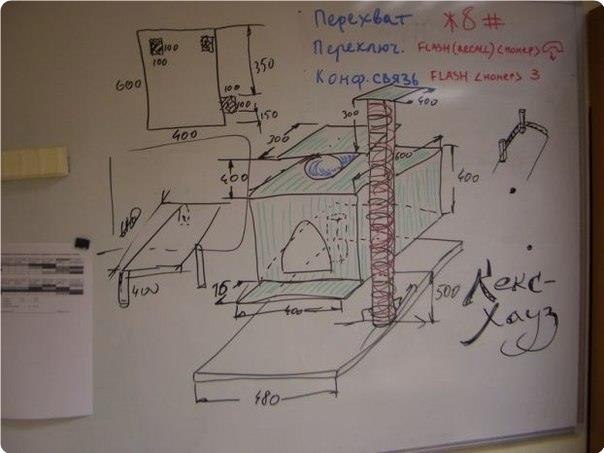 Перехват *8#
Переключ. FLASH(RECALL)<номер>
Конф.связь FLASH <номер> 3
100
100
600
350
100
100
150
400
300
300
400
600
400
400
400
16
400
500
480
Лекс-
Хауз